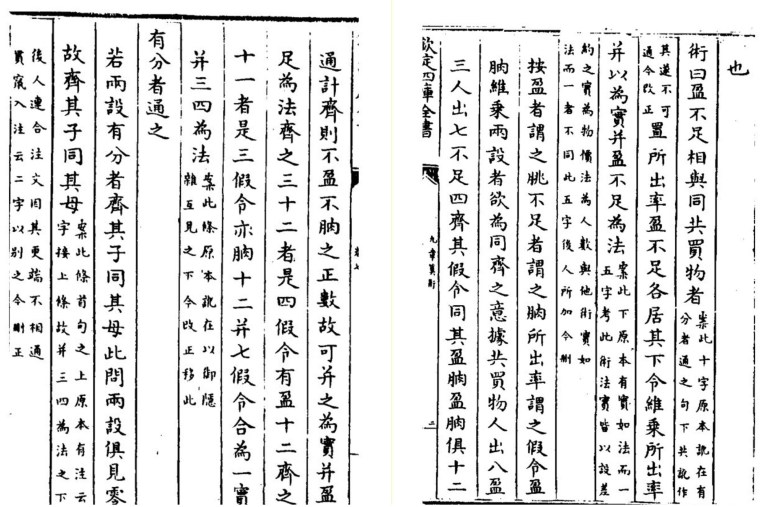 也
術曰盈不足相與同共買物者
案此十字原本訛在有
分者通之句下共訛作
其遂不可
通今改正
置所出率盈不足各居其下令維乘所出率
并以為實并盈不足為法
案此下原本有實如法而一
五字考此術法實皆以設差
約之實為物價法為人數與他術實如
法而一者不同此五字後人所加今刪
按盈者謂之朓不足者謂之朒所出率謂之假令盈
朒維乘兩設者欲為同齊之意據共買物人出八盈
三人出七不足四齊其假令同其盈朒盈朒俱十二
欽定四庫全書
九章算術
二
通計齊則不盈不朒之正數故可并之為實并盈
足為法齊之三十二者是四假令有盈十二齊之
十一者是三假令亦朒十二并七假令合為一實
并三四為法
案此條原本訛在以御隱
雜互見之下今改正移此
有分者通之
若兩設有分者齊其子同其母此問兩設俱見零
故齊其子同其母
案此條首句之上原本有注云
字接上條故并三四為法之下
後人連合注文因其更端不相通
貫竄入注云二字以別之今刪正